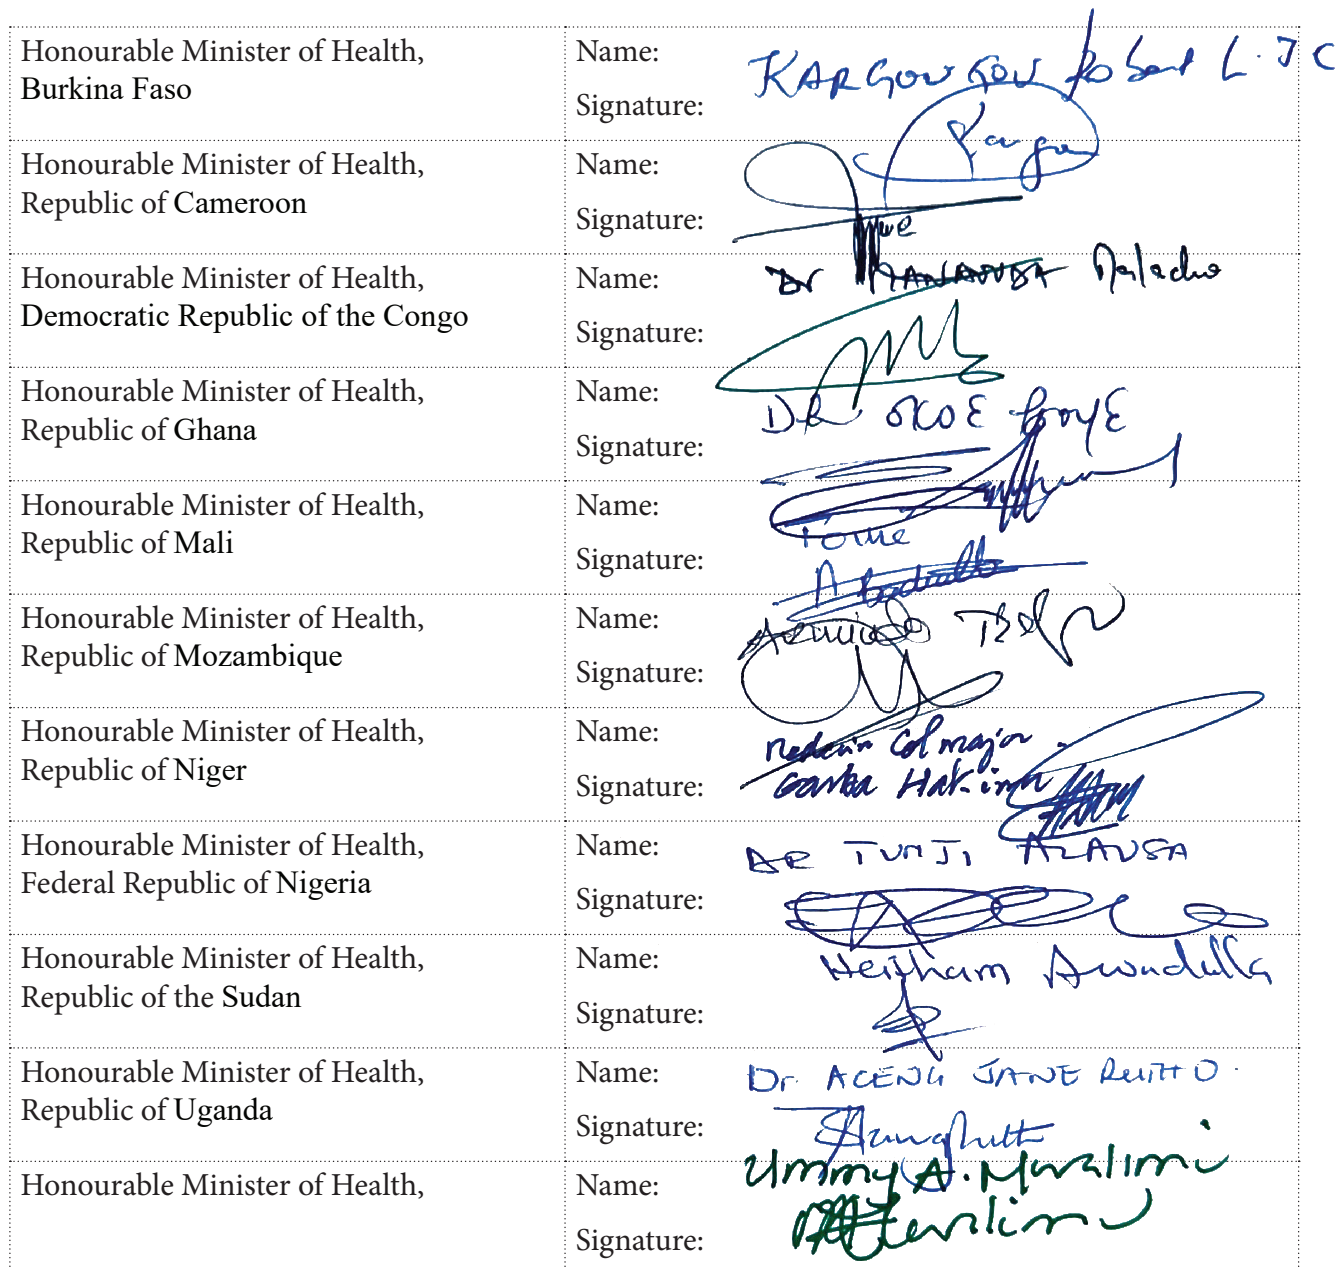 Honourable Minister of Health,
Burkina Faso
Name: KARGOUGOU Robert L.J C
Signature:
Honourable Minister of Health,
Republic of Cameroon
Name:
Signature:
Honourable Minister of Health,
Democratic Republic of the Congo
Name: Dr
Signature:
Honourable Minister of Health,
Republic of Ghana
Name: DR OKOE BOYE
Signature:
Honourable Minister of Health,
Republic of Mali
Name:
Signature:
Honourable Minister of Health,
Republic of Mozambique
Name: Armindo
Signature:
Honourable Minister of Health,
Republic of Niger
Name: Médecin Col major
Signature: Garba Hakimi
Honourable Minister of Health,
Federal Republic of Nigeria
Name: DR TUNJI ALAUSA
Signature:
Honourable Minister of Health,
Republic of the Sudan
Name: Heitham Awadulla
Signature:
Honourable Minister of Health,
Republic of Uganda
Name: Dr ACENG JANE RUTH O.
Signature:
Honourable Minister of Health,
Name: Ummy A. Mwalimu
Signature: